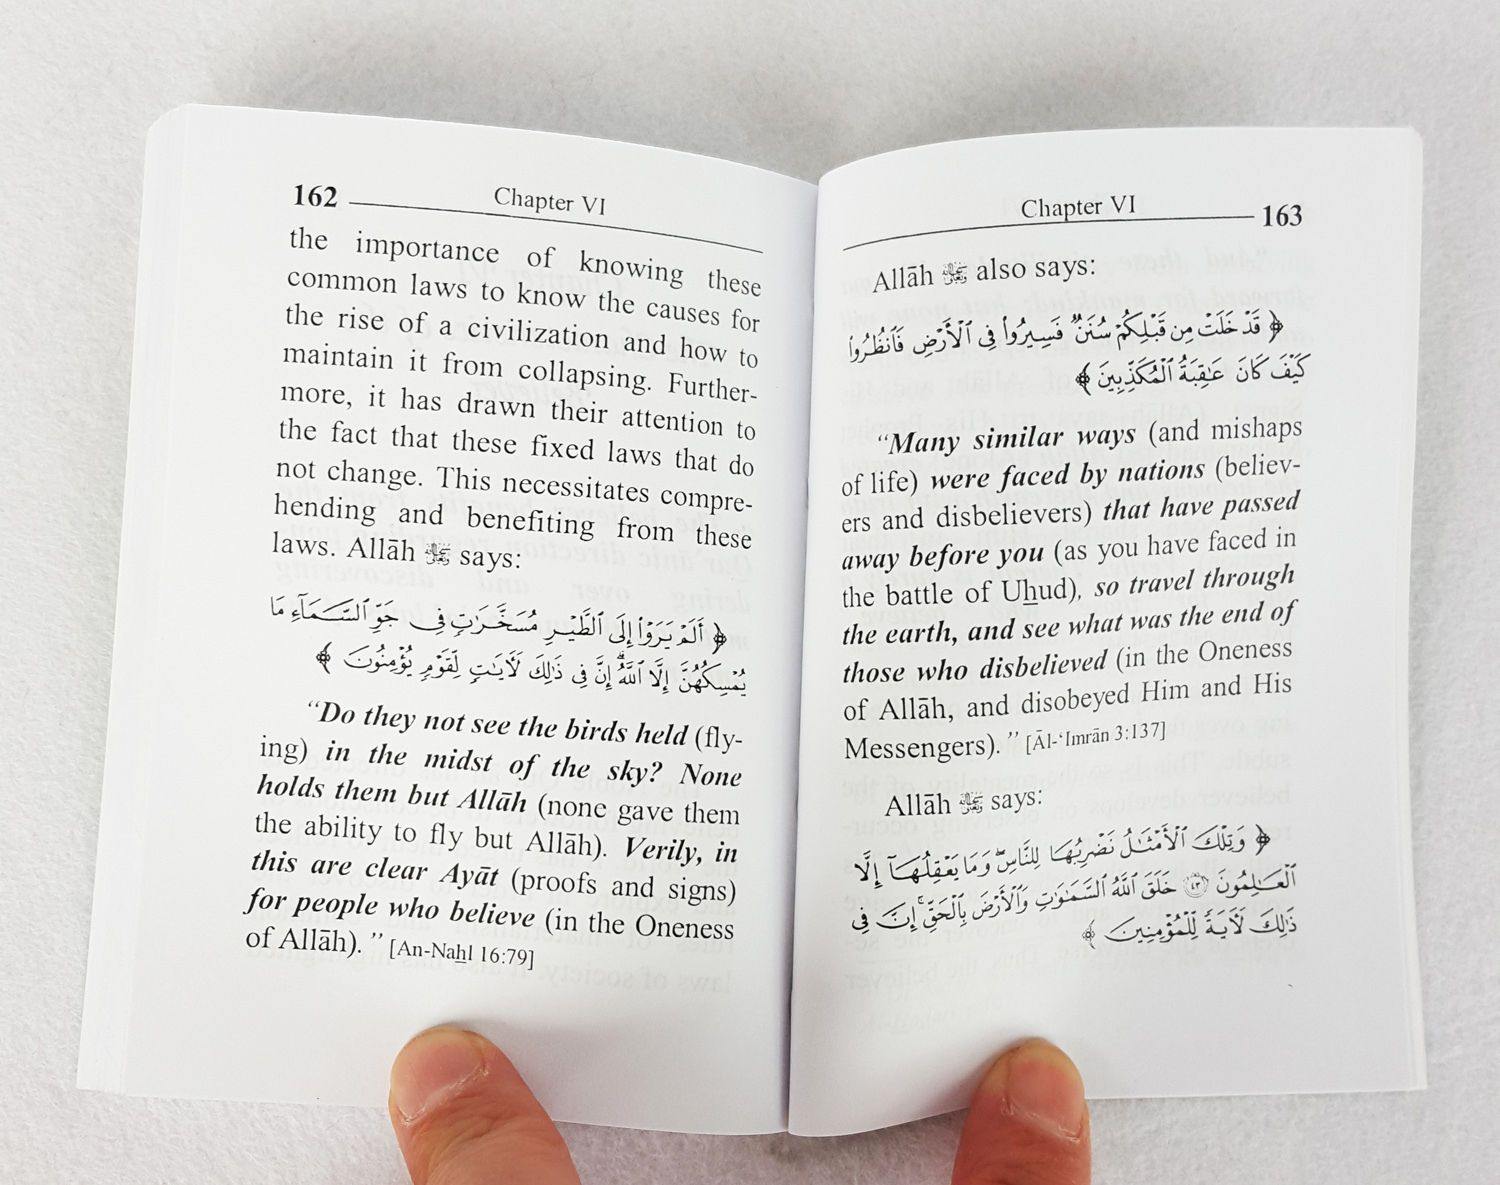 162 Chapter VI
the importance of knowing these
common laws to know the causes for
the rise of a civilization and how to
maintain it from collapsing. Further-
more, it has drawn their attention to
the fact that these fixed laws that do
not change. This necessitates compre-
hending and benefiting from these
laws. Allāh ﷻ says:
﴿ أَلَمْ يَرَوْا۟ إِلَى ٱلطَّيْرِ مُسَخَّرَٰتٍ فِى جَوِّ ٱلسَّمَآءِ مَا
يُمْسِكُهُنَّ إِلَّا ٱللَّهُ ۗ إِنَّ فِى ذَٰلِكَ لَـَٔايَٰتٍ لِّقَوْمٍ يُؤْمِنُونَ ﴾
“Do they not see the birds held (fly-
ing) in the midst of the sky? None
holds them but Allāh (none gave them
the ability to fly but Allāh). Verily, in
this are clear Ayāt (proofs and signs)
for people who believe (in the Oneness
of Allāh).” [An-Naẖl 16:79]
Chapter VI 163
Allāh ﷻ also says:
﴿ قَدْ خَلَتْ مِن قَبْلِكُمْ سُنَنٌ فَسِيرُوا۟ فِى ٱلْأَرْضِ فَٱنظُرُوا۟
كَيْفَ كَانَ عَٰقِبَةُ ٱلْمُكَذِّبِينَ ﴾
“Many similar ways (and mishaps
of life) were faced by nations (believ-
ers and disbelievers) that have passed
away before you (as you have faced in
the battle of Uẖud), so travel through
the earth, and see what was the end of
those who disbelieved (in the Oneness
of Allāh, and disobeyed Him and His
Messengers).” [Āl-‘Imrān 3:137]
Allāh ﷻ says:
﴿ وَتِلْكَ ٱلْأَمْثَٰلُ نَضْرِبُهَا لِلنَّاسِ ۖ وَمَا يَعْقِلُهَآ إِلَّا
ٱلْعَٰلِمُونَ ٤٣ خَلَقَ ٱللَّهُ ٱلسَّمَٰوَٰتِ وَٱلْأَرْضَ بِٱلْحَقِّ ۚ إِنَّ فِى
ذَٰلِكَ لَـَٔايَةً لِّلْمُؤْمِنِينَ ﴾